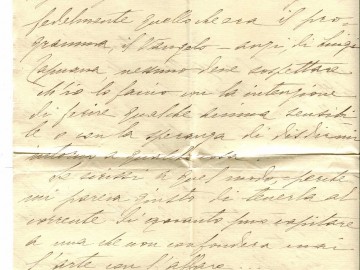 fedelmente quello che era il pro-
gramma, il Vangelo - anzi, di Luigi
Capuana nessuno deve sospettare
ch'io lo faccio con la intenzione
di ferire qualche anima sensibi-
le o con la speranza di
intorno a qualche cosa.
Le scrissi a quel modo perchè
mi pareva giusto di tenerla al
corrente di quanto può capitare
a una che non confonderà mai
l'arte con l'affare